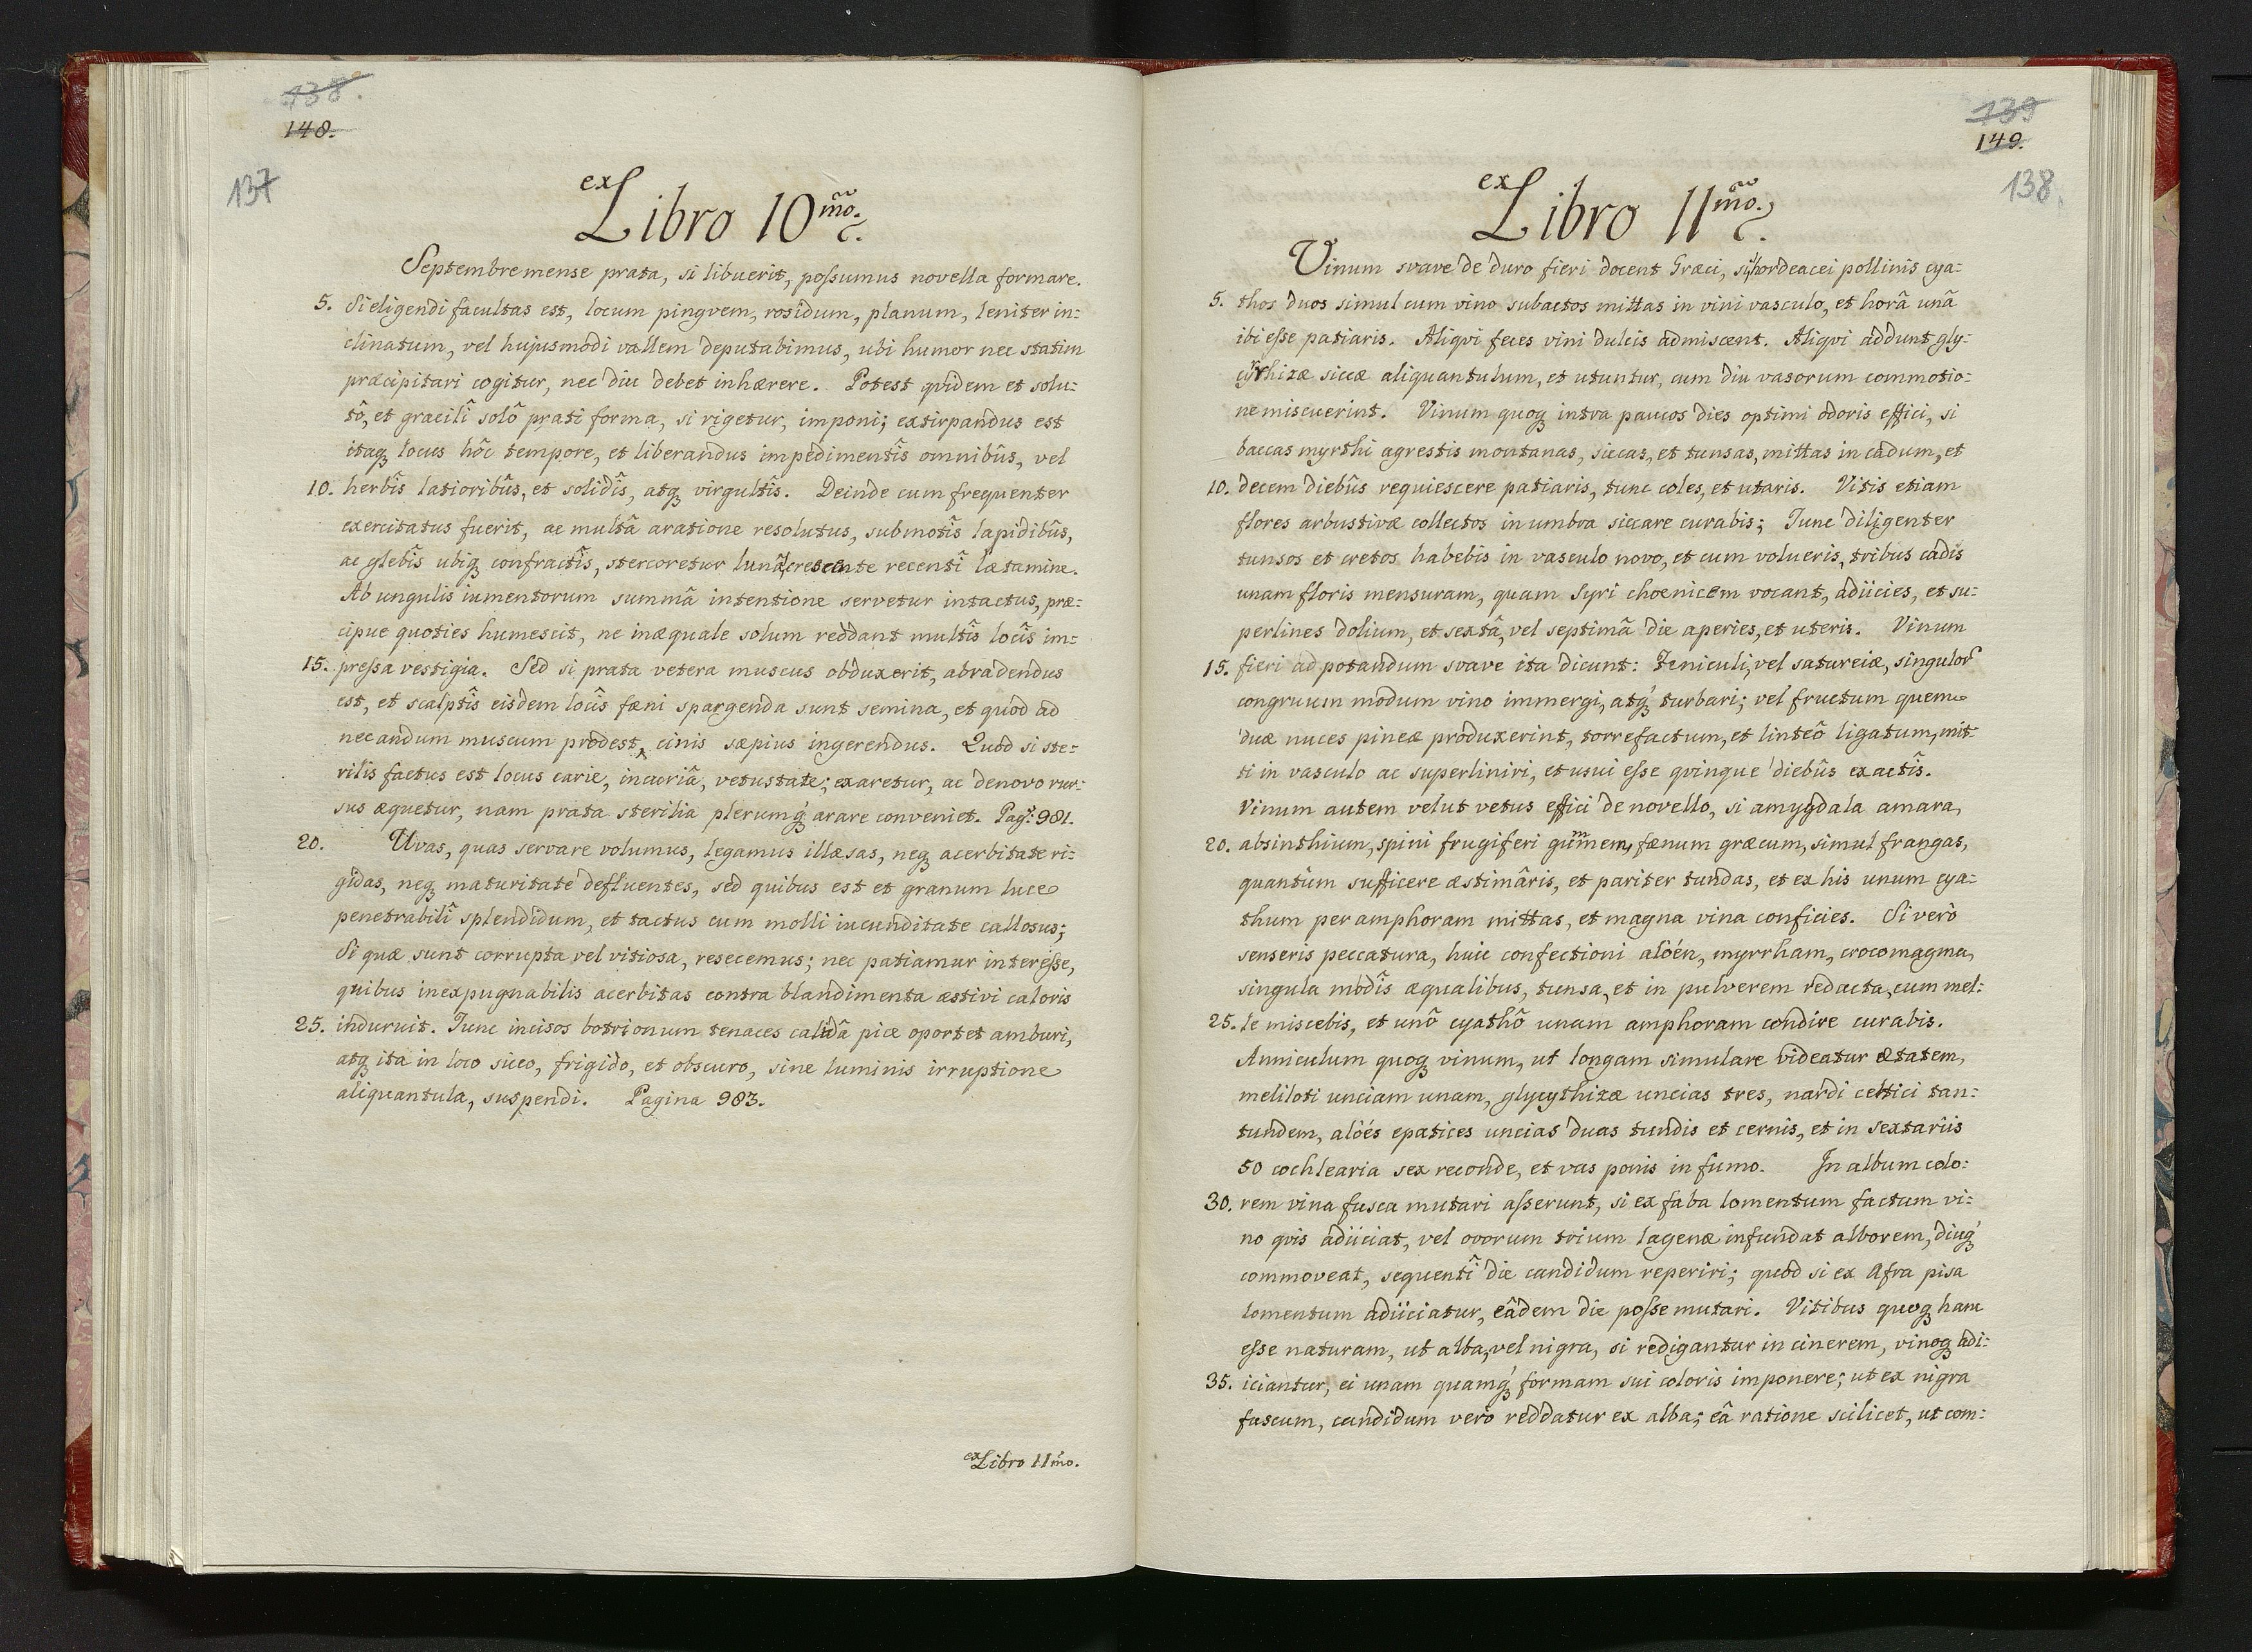 138.
148.
137
ex Libro 10mo.
Septembre mense prata, si libuerit, possumus novella formare.
5. Si eligendi facultas est, locum pingvem, rosidum, planum, leniter in=
clinatum, vel hujusmodi vallem deputabimus, ubi humor nec statim
præcipitari cogitur, nec diu debet inhærere. Potest qvidem et solu=
tô, et gracilî solô prati forma, si rigetur, imponi; extirpandus est
itaq; locus hôc tempore, et liberandus impedimentîs omnibûs, vel
10. herbîs latioribûs, et solidîs, atq; virgultîs. Deinde cum frequenter
exercitatus fuerit, ac multâ aratione resolutus, submotîs lapidibûs,
ac glebîs ubiq; confractîs, stercoretur lunâ crescente recentî lætamine.
Ab ungulis iumentorum summâ intentione servetur intactus, præ=
cipue quoties humescit, ne inæquale solum reddant multîs locîs im=
15. pressa vestigia. Sed si prata vetera muscus obduxerit, abradendus
est, et scalptîs eisdem locîs fæni spargenda sunt semina, et quod ad
necandum muscum prodest, cinis sæpius ingerendus. Quod si ste=
rilis factus est locus carie, incuriâ, vetustate; exaretur, ac denovo rur=
sus æquetur, nam prata sterilia plerumq; arare conveniet. Pag: 981.
20. Uvas, quas servare volumus, legamus illæsas, neq; acerbitate ri=
gidas, neq; maturitate defluentes, sed quibus est et granum luce
penetrabilî splendidum, et tactus cum molli iucunditate callosus;
Si quæ sunt corrupta vel vitiosa, resecemus; nec patiamur interesse,
quibus inexpugnabilis acerbitas contra blandimenta æstivi caloris
25. induruit. Tunc incisos botrionum tenaces calidâ pice oportet amburi,
atq; ita in loco sicco, frigido, et obscuro, sine luminis irruptione
aliquantula, suspendi. Pagina 983.
ex Libro 11mo.
139
149.
138
ex Libro 11mo.
Vinum svave de duro fieri docent Græci, si hordeacei pollinis cya=
5. thos duos simul cum vino subactos mittas in vini vasculo, et horâ unâ
ibi esse patiaris. Aliqvi feces vini dulcis admiscent. Aliqvi addunt gly=
cyrhizæ siccæ aliquantulum, et utuntur, cum diu vasorum commotio=
ne miscuerint. Vinum quoq; intra paucos dies optimi odoris effici, si
baccas myrthi agrestis montanas, siccas, et tunsas, mittas in cadum, et
10. decem diebûs requiescere patiaris, tunc coles, et utaris. Vitis etiam
flores arbustivæ collectos in umbra siccare curabis; Tunc diligenter
tunsos et cretos habebis in vasculo novo, et cum volueris, tribus cadis
unam floris mensuram, quam Syri choenicem vocant, adiicies, et su=
perlines dolium, et sextâ, vel septimâ die aperies, et uteris. Vinum
15. fieri ad potandum svave ita dicunt: Feniculi, vel satureiæ, singulor
congruum modum vino immergi, atq; turbari; vel fructum quem
duæ nuces pineæ produxerint, torrefactum, et linteô ligatum, mit=
ti in vasculo ac superliniri, et usui esse qvinque diebûs exactîs.
Vinum autem velut vetus effici de novello, si amygdala amara,
20. absinthium, spini frugiferi gummem, fænum græcum, simul frangas,
quantûm sufficere æstimâris, et pariter tundas, et ex his unum cya=
thum per amphoram mittas, et magna vina conficies. Si verò
senseris peccatura, huic confectioni aloén, myrrham, crocomagma,
singula modîs æqualibus, tunsa, et in pulverem redacta, cum mel=
25. le miscebis, et unô cyathô unam amphoram condire curabis.
Anniculum quoq; vinum, ut longam simulare videatur ætatem,
meliloti unciam unam, glycythizæ uncias tres, nardi celtici tan=
tundem, aloés epatices uncias duas tundis et cernis, et in sextariis
50 cochlearia sex reconde, et vas ponis in fumo. In album colo=
30. rem vina fusca mutari asserunt, si ex faba lomentum factum vi=
no qvis adiiciat, vel ovorum trium lagenæ infundat alborem, diuq;
commoveat, sequentî die candidum reperiri; quod si ex Afra pisa
lomentum adiiciatur, eâdem die posse mutari. Vitibus quoq; hanc
esse naturam, ut alba, vel nigra, si redigantur in cinerem, vinoq; adi=
35. iciantur, ei unam quamq; formam sui coloris imponere; ut ex nigra
fuscum, candidum verò reddatur ex alba; eâ ratione scilicet, ut com=